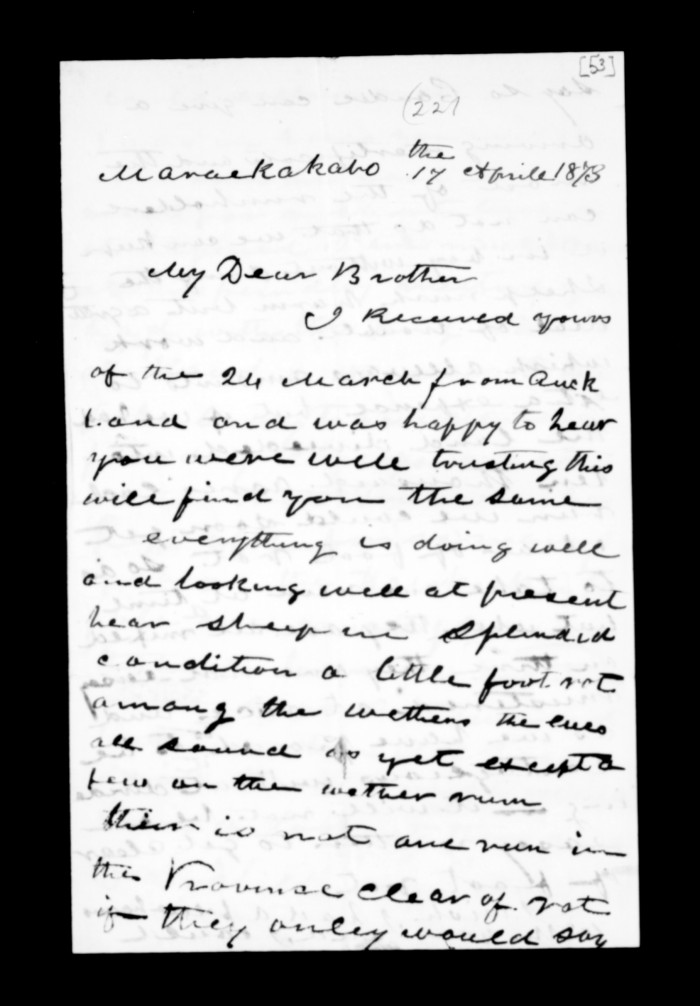 [53]
(221
Maraekakaho the 17 Aprile 1873
My Dear Brother
I Received yours
of the 24 March from Auck
land and was happy to hear
you were well trusting this
will find you the same
everything is doing well
and looking well at present
hear sheep in splendid
condition a little foot rot
among the wethers the ewes
all sound as yet except a
few on the wether run
their is not one run in
this Provinse clear of rot
if they onley would say